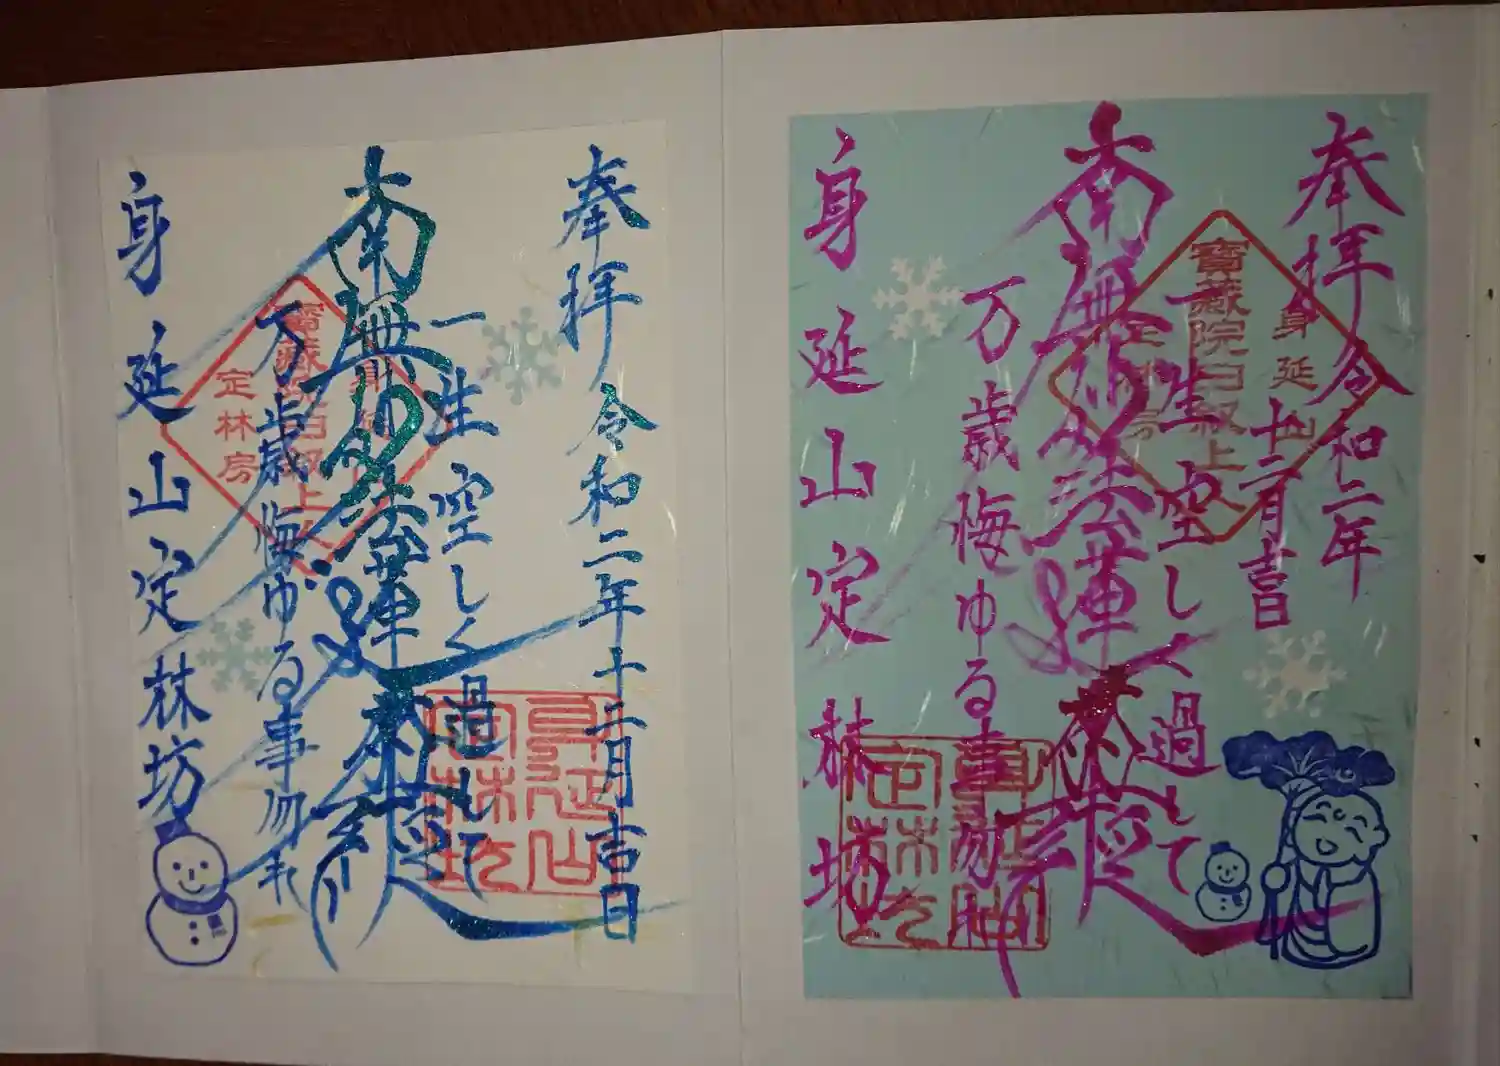 奉拝 令和二年十二月吉日
一生空しく過して
南無妙法蓮華経
万歳悔ゆる事勿れ
身延山定林坊
定林房
身延山定林坊
奉拝 令和二年
十二月吉日
一生空しく過して
南無妙法蓮華経
万歳悔ゆる事勿れ
身延山定林坊
身延山
寳蔵院日叙上人
定林房
身延山定林坊